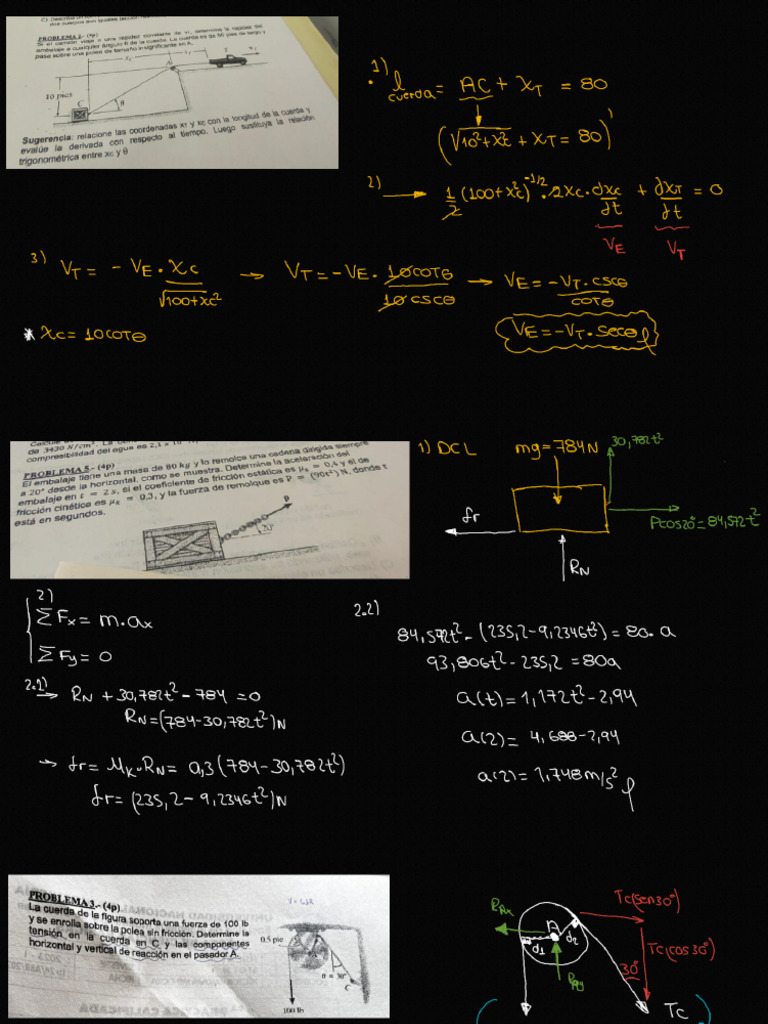 C) Describa un
PROBLEMA 2.- (4p)
Si el camión viaja a una rapidez constante de vT, determine la rapidez del
embalaje a cualquier ángulo θ de la cuerda. La cuerda es de 80 pies de largo y
pasa sobre una polea de tamaño insignificante en A.
xC
xT
T
vT
A
10 pies
C
θ
Sugerencia: relacione las coordenadas xT y xC con la longitud de la cuerda y
evalúe la derivada con respecto al tiempo. Luego sustituya la relación
trigonométrica entre xC y θ
1) l cuerda = AC + XT = 80
(√10²+Xc² + XT = 80)'
2) → 1/2 (100+Xc²)^-1/2 · 2Xc · dXc/dt + dXT/dt = 0
VE VT
3) VT = - VE · Xc/√100+Xc² → VT = -VE · 10cotθ/10cscθ → VE = -VT · cscθ/cotθ
* Xc = 10cotθ
VE = -VT · secθ
de 3430 N/cm². La
compresibilidad del agua es 2,1 x
PROBLEMA 5.- (4p)
El embalaje tiene una masa de 80 kg y lo remolca una cadena dirigida siempre
a 20° desde la horizontal, como se muestra. Determine la aceleración del
embalaje en t = 2 s, si el coeficiente de fricción estática es μs = 0,4 y el de
fricción cinética es μk = 0,3, y la fuerza de remolque es P = (90t²) N, donde t
está en segundos.
P
20°
1) DCL
mg = 784N
30,782t²
fr
Pcos20° = 84,572t²
RN
2)
ΣFx = m.ax
ΣFy = 0
2.1)
→ RN + 30,782t² - 784 = 0
RN = (784-30,782t²)N
→ fr = Mk.RN = 0,3(784-30,782t²)
fr = (235,2-9,2346t²)N
2.2)
84,572t² - (235,2-9,2346t²) = 80.a
93,806t² - 235,2 = 80a
a(t) = 1,172t² - 2,94
a(2) = 4,688-2,94
a(2) = 1,748 m/s²
PROBLEMA 3.- (4p)
La cuerda de la figura soporta una fuerza de 100 lb
y se enrolla sobre la polea sin fricción. Determine la
tensión en la cuerda en C y las componentes
horizontal y vertical de reacción en el pasador A.
0.5 pie
θ = 30°
C
100 lb
RAx
A
d1
d2
RAy
Tc(sen30°)
Tc(cos30°)
30°
Tc